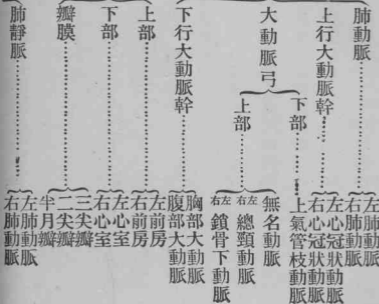 肺動脈……………………
左肺動脈
右肺動脈
上行大動脈幹………
左心冠狀動脈
右心冠狀動脈
大動脈弓
下部………
上氣管枝動脈
上部………
無名動脈
左右總頸動脈
左右鎖骨下動脈
下行大動脈幹………
胸部大動脈
腹部大動脈
上部……………………
左前房
右前房
下部……………………
左心室
右心室
瓣膜……………………
三尖瓣
二尖瓣
半月瓣
肺靜脈……………………
左肺動脈
右肺動脈